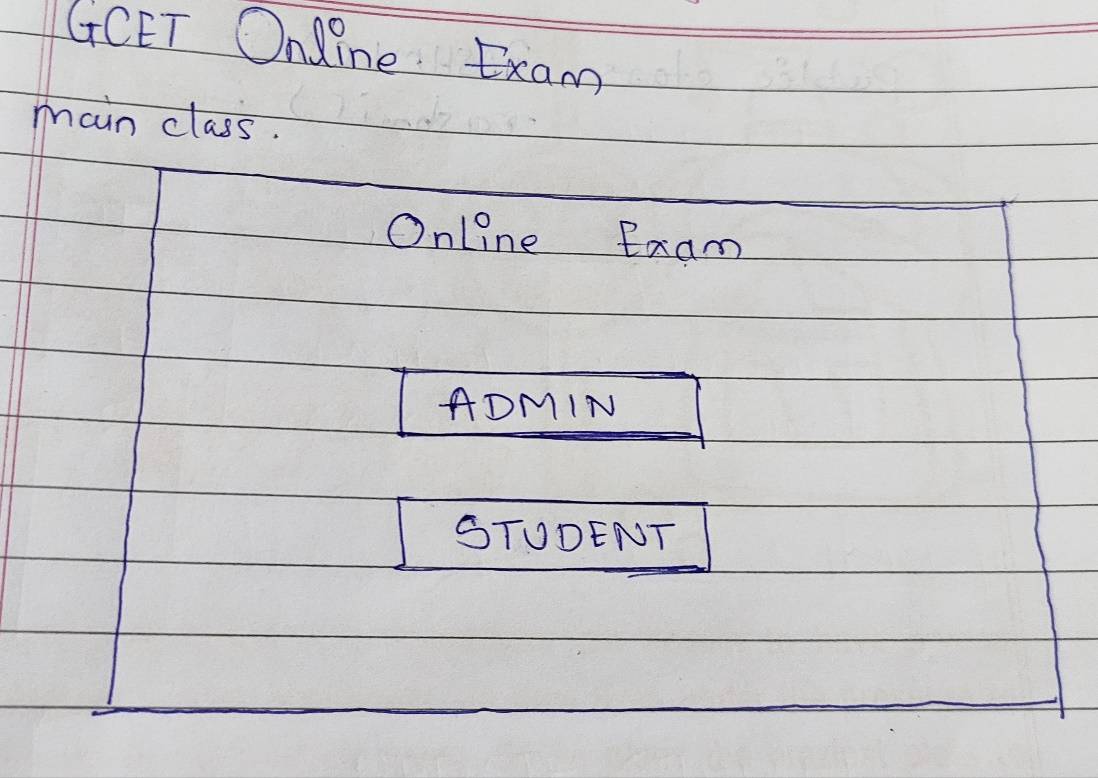 GCET Online Exam
main class.
Online Exam
ADMIN
STUDENT